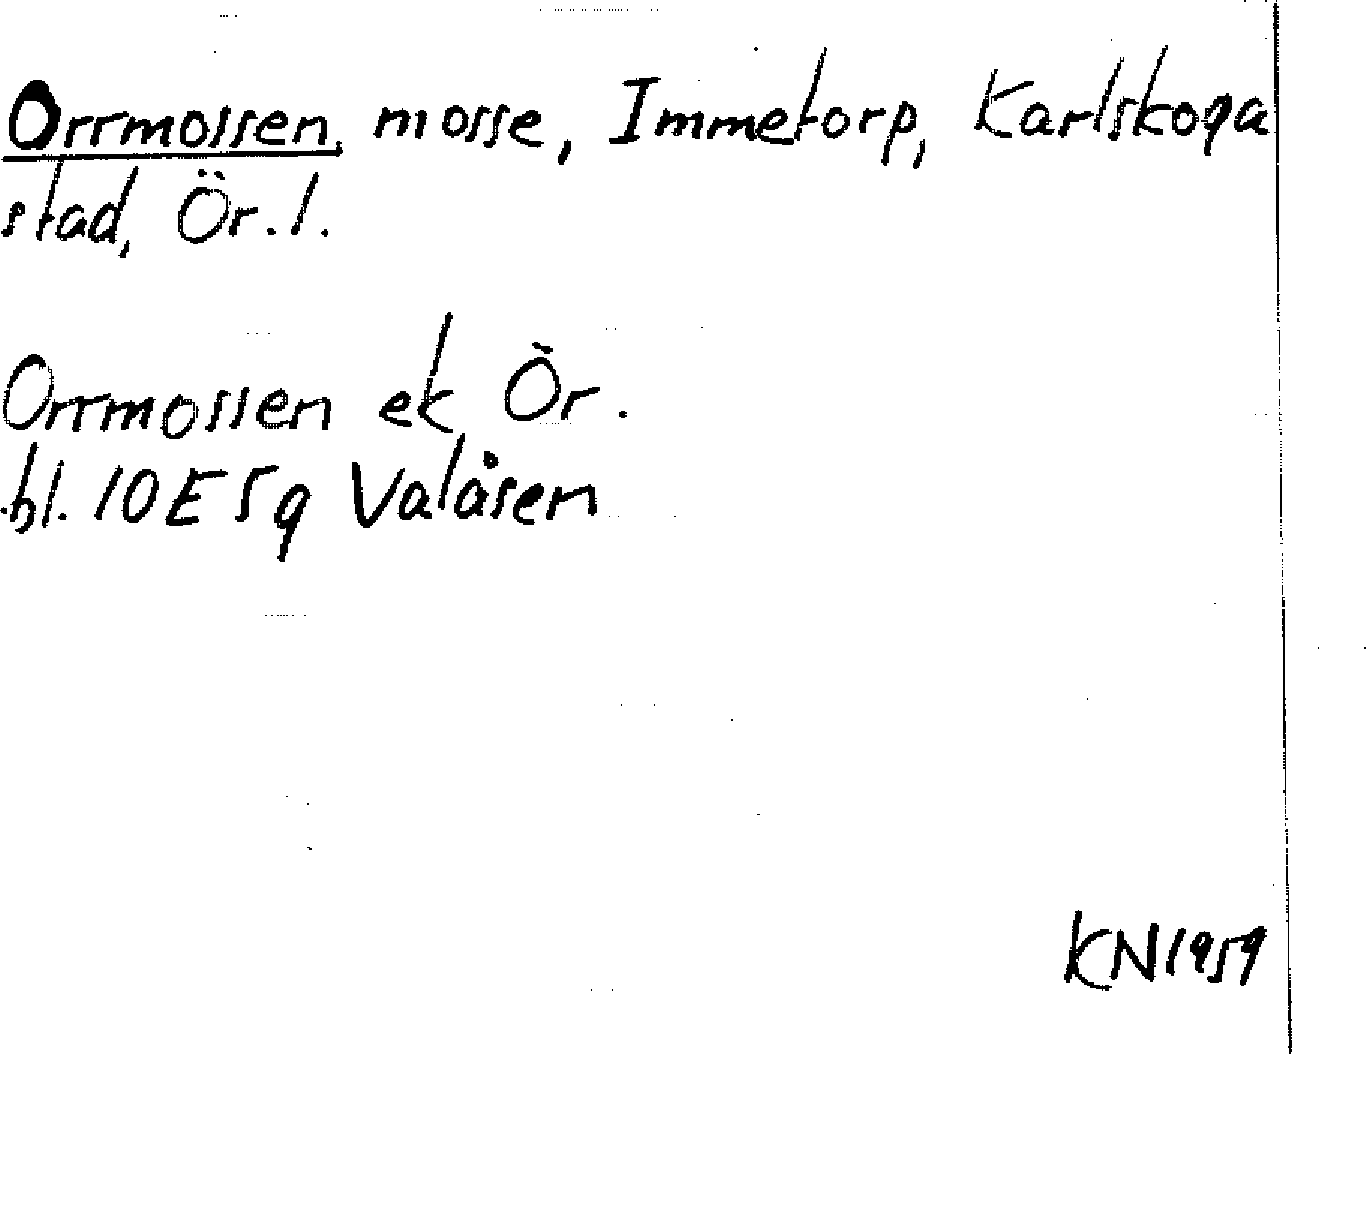 Orrmossen, mosse, Immetorp, Karlskoga
stad, Ör. l.
Orrmossen ek Ör.
bl. 10E5g Valåsen
KN1959